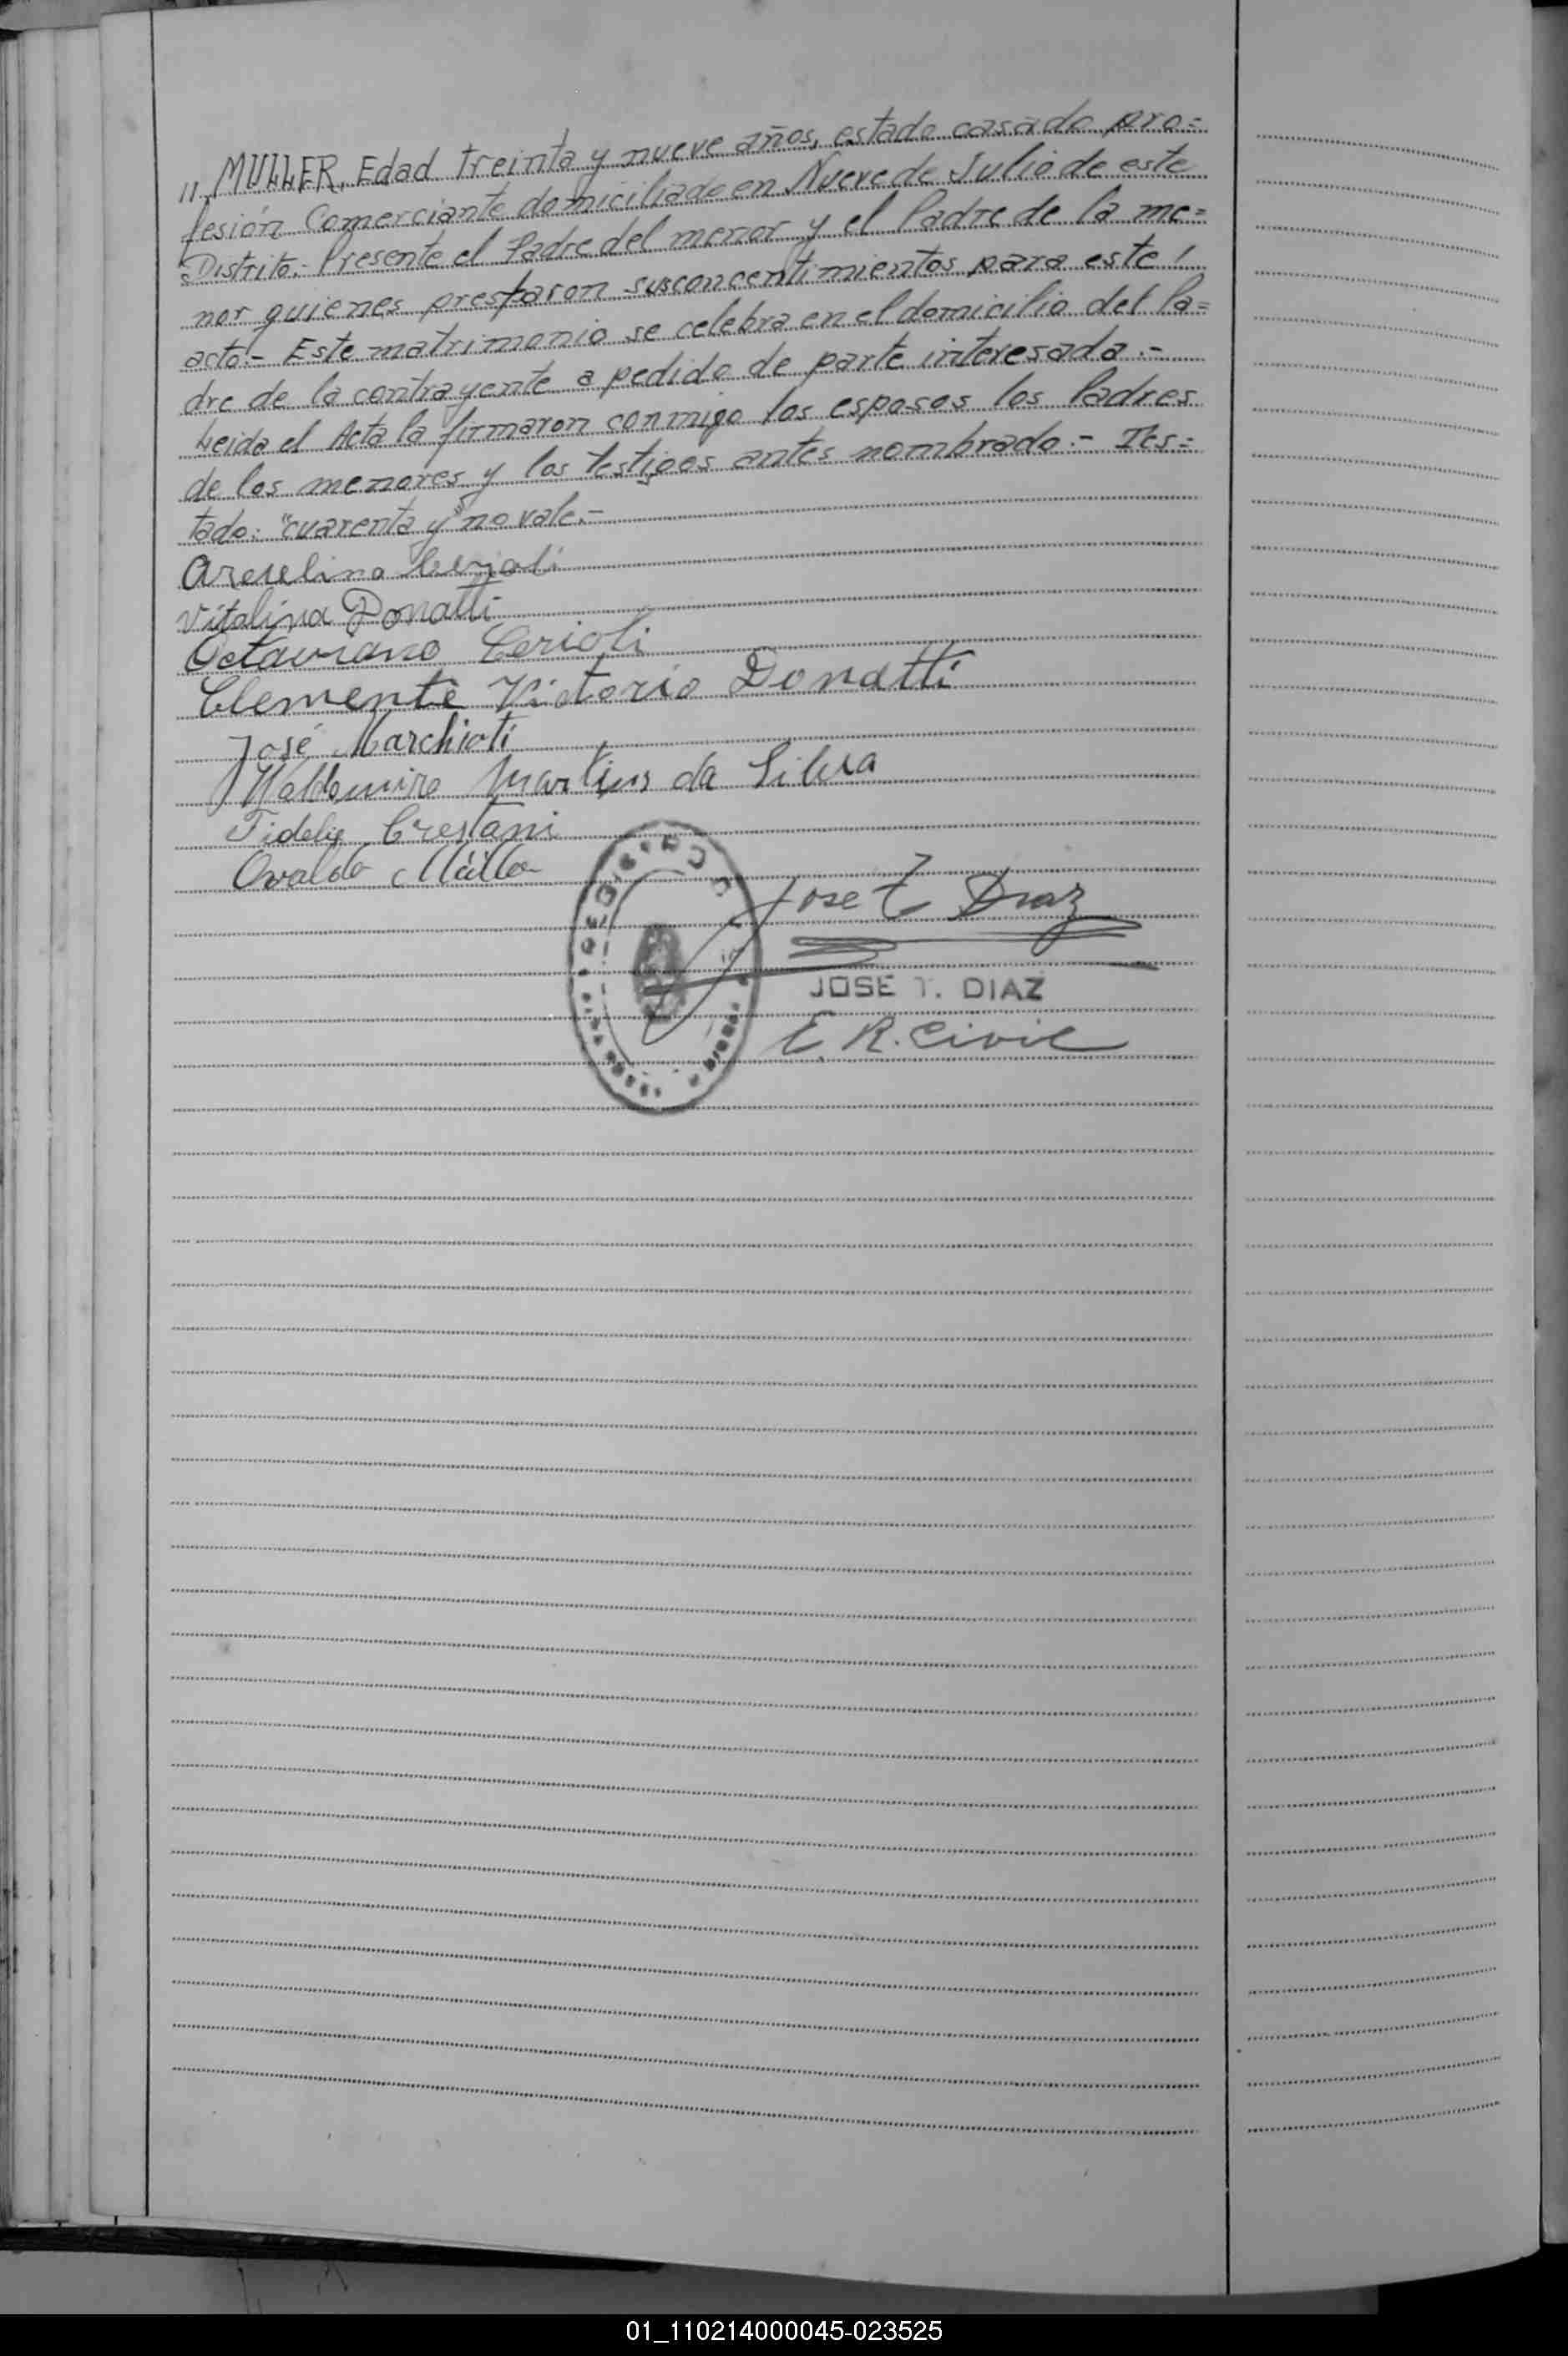 11. MULLER, Edad treinta y nueve años, estado casado pro=
fesión Comerciante domiciliado en Nueve de Julio de este
Distrito.- Presente el Padre del menor y el Padre de la me=
nor quienes prestaron sus concentimientos para este
acto.- Este matrimonio se celebra en el domicilio del Pa=
dre de la contrayente a pedido de parte interesada.-
Leida el Acta la firmaron conmigo los esposos los Padres
de los menores y los testigos antes nombrado.- Tes=
tado: "cuarenta y" no vale.-
Arcelino Cerioli
Vitalina Donatti
Octaviano Cerioli
Clemente Victorio Donatti
José Marchioti
Waldomiro Martins da Silva
Fidely Crestani
Ovaldo Müller
Jose T Diaz
JOSE T. DIAZ
E. R. Civil
01_110214000045-023525